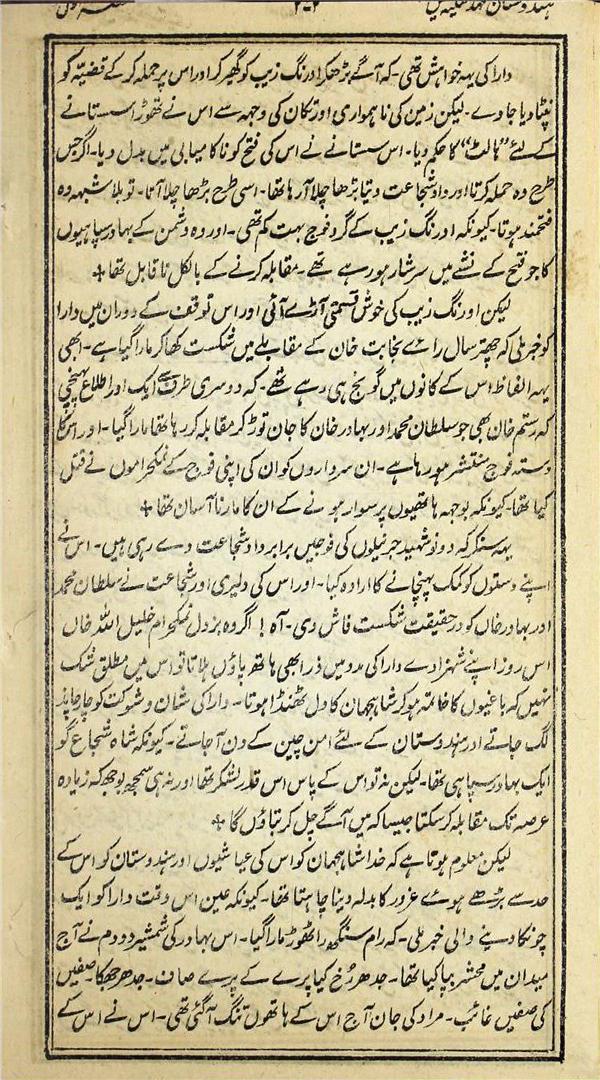 ۲۰۲
دارا کی یہہ خواہش تھی۔ کہ آگے بڑھکر اورنگ زیب کو گھیر کر اور اس پر حملہ کر کے قضیہ کو
نپٹا دیا جاوے۔ لیکن زمین کی ناہمواری اور تکان کی وجہہ سے اس نے تھوڑا سستانے
کے لئے "ہالٹ" کا حکم دیا۔ اس سستانے نے اس کی فتح کو ناکامیابی میں بدل دیا۔ اگر جس
طرح وہ حملہ کرتا اور داد شجاعت دیتا بڑھا چلا آ رہا تھا۔ اسی طرح بڑھا چلا آتا۔ تو بلا شبہہ وہ
فتحمند ہوتا۔ کیونکہ اورنگ زیب کے گرد فوج بہت کم تھی۔ اور وہ دشمن کے بہادر سپاہیوں
کا جو فتح کے نشے میں سرشار ہو رہے تھے۔ مقابلہ کرنے کے بالکل ناقابل تھا +
لیکن اورنگ زیب کی خوش قسمتی آڑے آئی اور اس توقف کے دوران میں دارا
کو خبر ملی کہ چھتر سال رائے نجابت خان کے مقابلے میں شکست کھا کر مارا گیا ہے۔ ابھی
یہہ الفاظ اس کے کانوں میں گونج ہی رہے تھے۔ کہ دوسری طرف سے ایک اور اطلاع پہنچی
کہ رستم خان بھی جو سلطان محمد اور بہادر خان کا جان توڑ کر مقابلہ کر رہا تھا مارا گیا۔ اور اس کا
دستہ فوج منتشر ہو رہا ہے۔ ان سرداروں کو ان کی اپنی فوج کے نمکحراموں نے قتل
کیا تھا۔ کیونکہ بوجہہ ہاتھیوں پر سوار ہونے کے ان کا مارنا آسان تھا +
یہہ سنکر کہ دونو شہید جرنیلوں کی فوجیں برابر داد شجاعت دے رہی ہیں۔ اس نے
اپنے دستوں کو کمک پہنچانے کا ارادہ کیا۔ اور اس کی دلیری اور شجاعت نے سلطان محمد
اور بہادر خاں کو درحقیقت شکست فاش دی۔ آہ ! اگر وہ بزدل نمکحرام خلیل اللہ خاں
اس روز اپنے شہزادے دارا کی مدد میں ذرا بھی ہاتھ پاؤں ہلاتا تو اس میں مطلق شک
نہیں کہ باغیوں کا خاتمہ ہو کر شاہجہان کا دل ٹھنڈا ہوتا۔ دارا کی شان و شوکت کو چار چاند
لگ جاتے اور ہندوستان کے لئے امن چین کے دن آ جاتے۔ کیونکہ شاہ شجاع گو
ایک بہادر سپاہی تھا۔ لیکن نہ تو اس کے پاس اس قدر لشکر تھا اور نہ ہی سمجھ بوجھ کہ زیادہ
عرصہ تک مقابلہ کر سکتا جیسا کہ میں آگے چل کر بتاؤں گا +
لیکن معلوم ہوتا ہے کہ خدا شاہجہان کو اس کی عیاشیوں اور ہندوستان کو اس کے
حد سے بڑھے ہوئے غرور کا بدلہ دینا چاہتا تھا۔ کیونکہ عین اس وقت دارا کو ایک
چونکا دینے والی خبر ملی۔ کہ رام سنگھ راٹھوڑ مارا گیا۔ اس بہادر کی شمشیر دو دم نے آج
میدان میں محشر بپا کیا تھا۔ جدھر رُخ کیا پرے کے پرے صاف۔ جدھر جھکا۔ صفیں
کی صفیں غائب۔ مراد کی جان آج اس کے ہاتھوں تنگ آ گئی تھی۔ اس نے اس کے